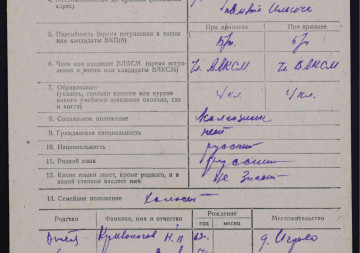 адрес)
5. Партийность (время вступления в члены
или кандидаты ВКП(б)
При приписке
При призыве
б/п.
б/п
6. Член или кандидат ВЛКСМ (время вступ-
ления в члены или кандидаты ВЛКСМ)
Чл. ВЛКСМ
Чл. ВЛКСМ
7. Образование:
(указать, сколько классов или курсов
какого учебного заведения окончил, где
и когда)
4 кл.
4 кл.
8. Социальное положение
колхозник
9. Гражданская специальность
нет
10. Национальность
русский
11. Родной язык
русский
12. Какие языки знает, кроме родного, и в
какой степени владеет ими
не знает
13. Семейное положение
холост
Родство
Фамилия, имя и отчество
Рождение
год
месяц
Местожительство
Отец
Кривоногов Н. П
д.